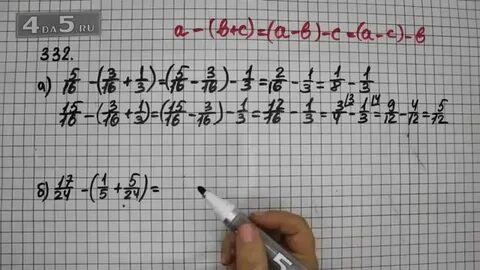 4DA5.RU
a − (в+с)=(a−в)−с=(a−с)−в
332.
а) 5/16 −(3/16 + 1/3)=(5/16 − 3/16)− 1/3 = 2/16 − 1/3 = 1/8 − 1/3
15/16 −(3/16 + 1/3)=(15/16 − 3/16)− 1/3 = 12/16 − 1/3 = 3/4 \3 − 1/3 \4 = 9/12 − 4/12 = 5/12
б) 17/24 −(1/5 + 5/24)=